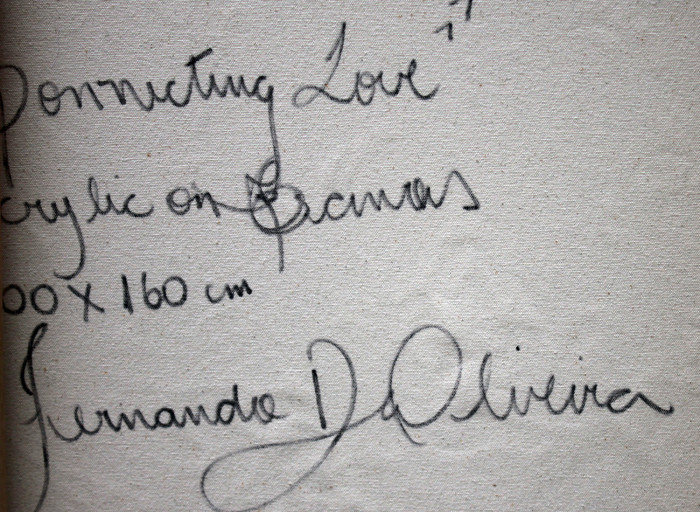 Connecting Love"
crylic on canvas
00 X 160 cm
Fernando Da Oliveira